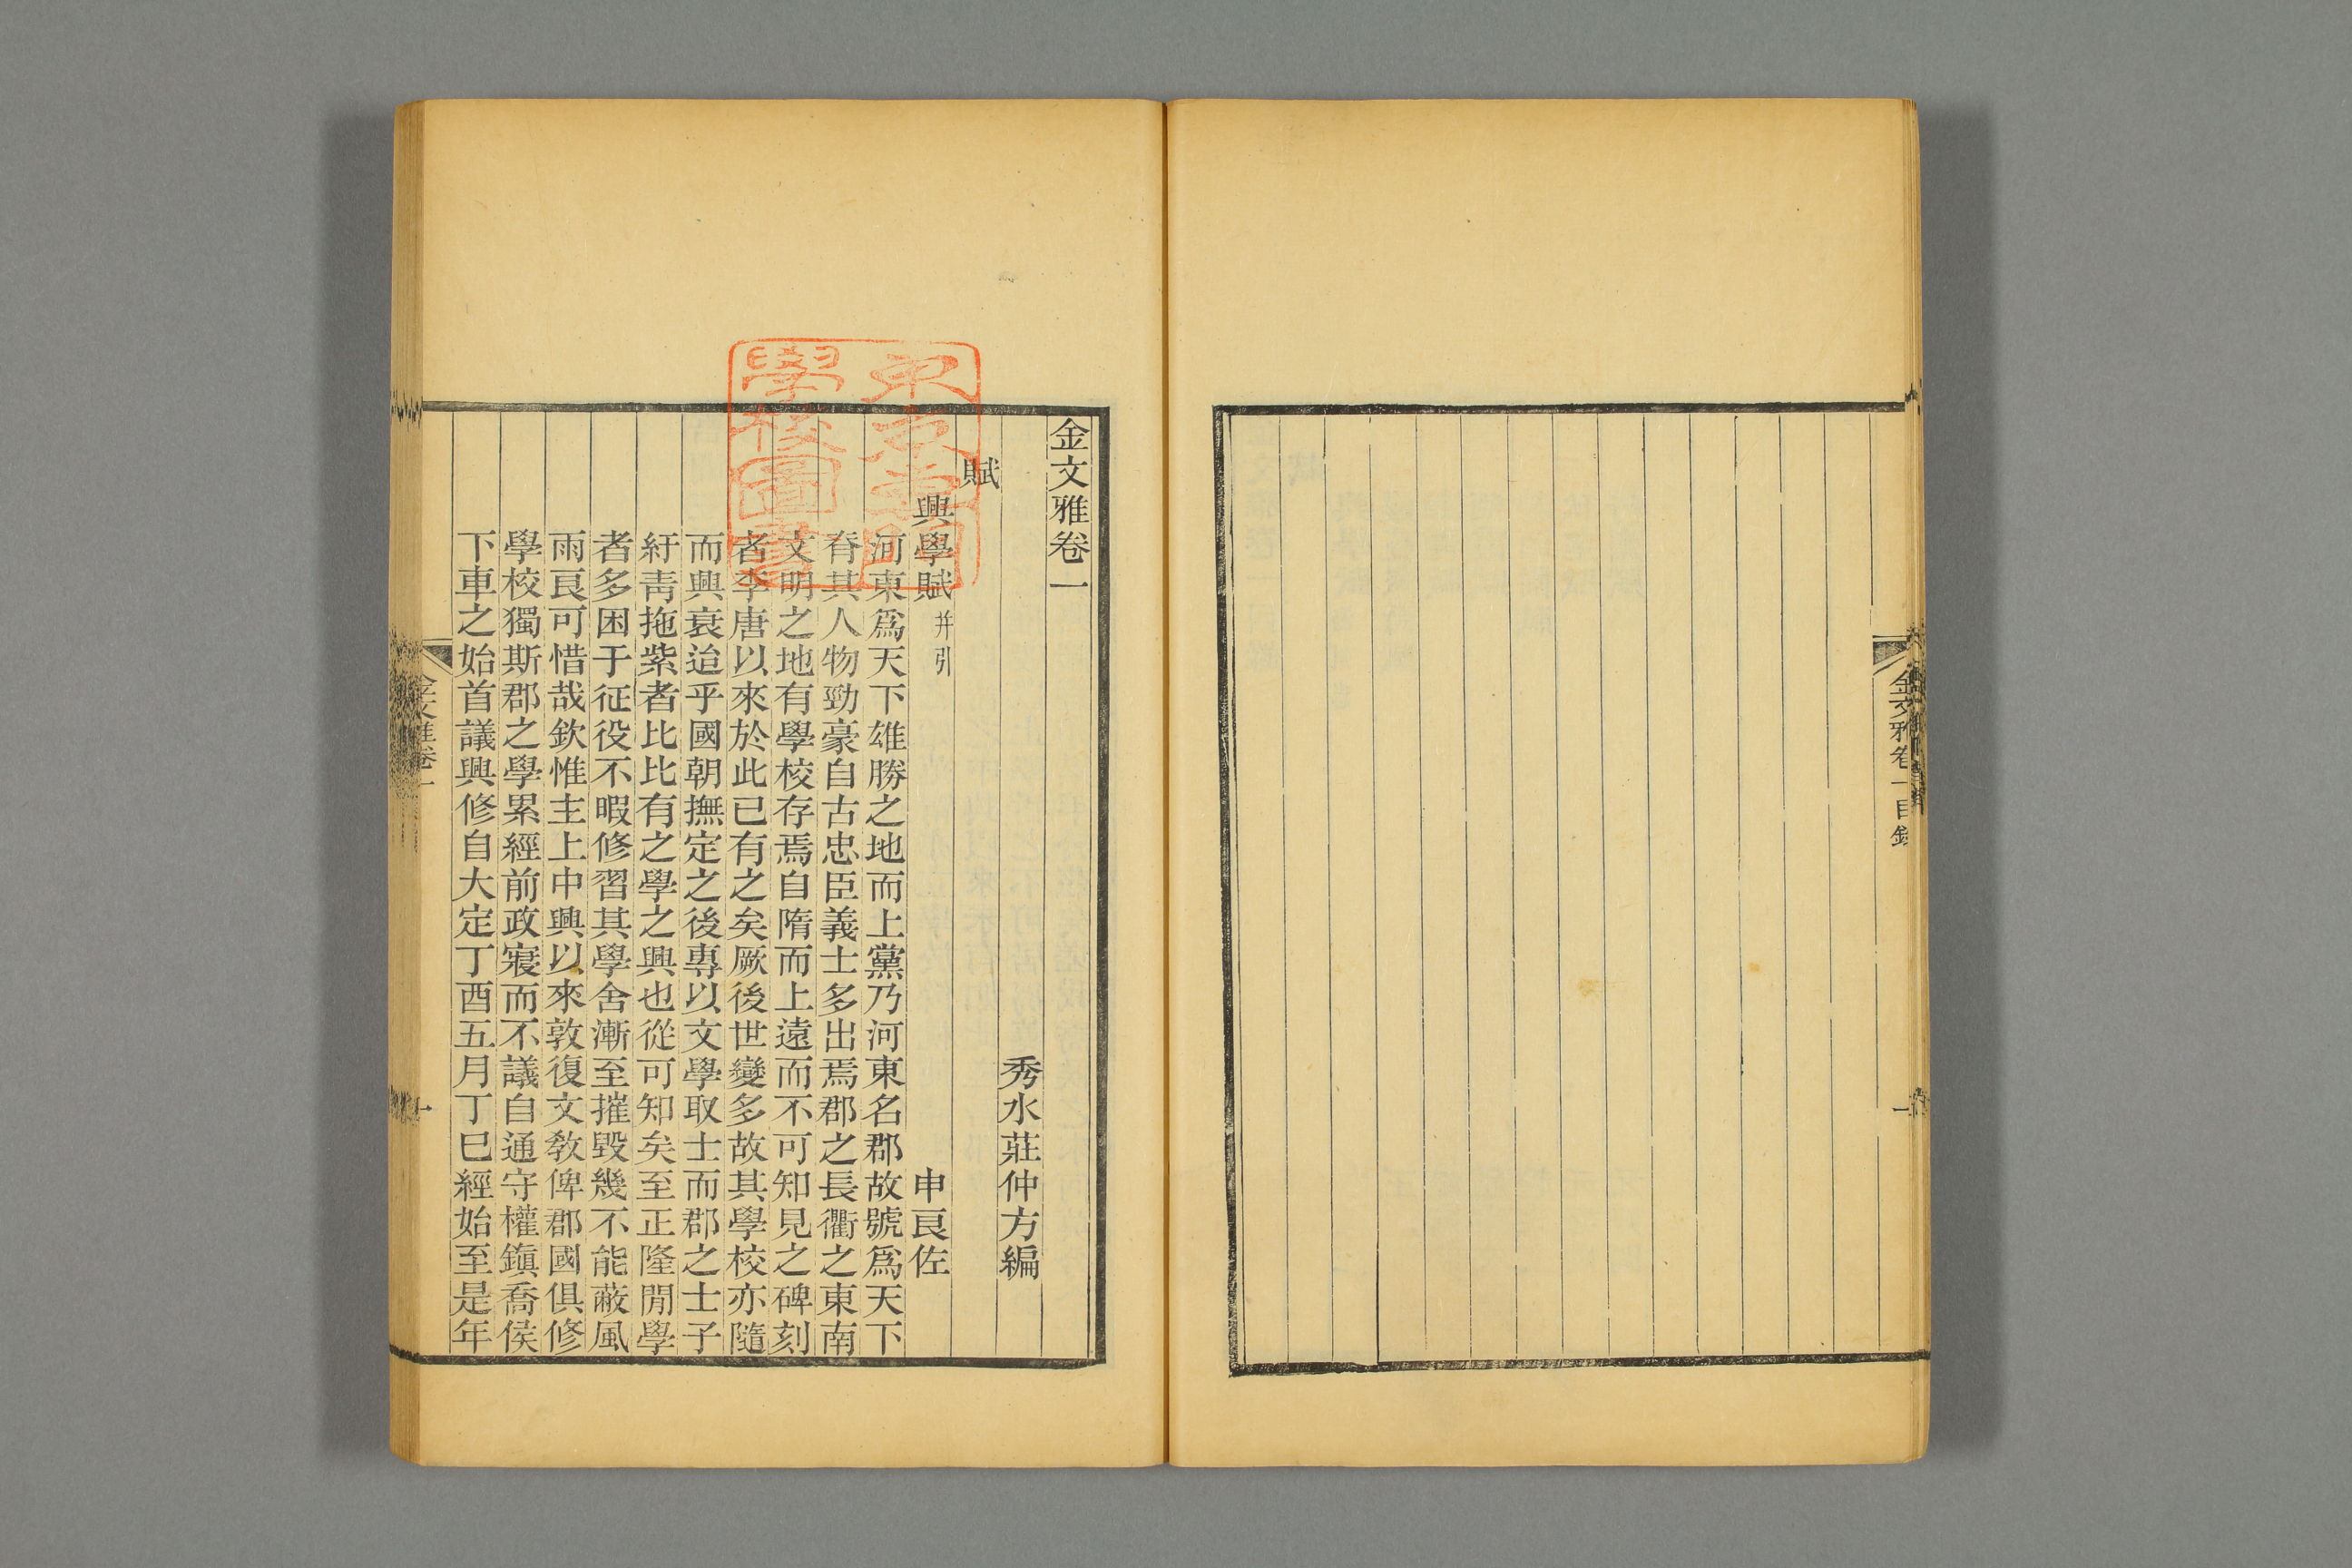 金文雅卷一目錄
一
金文雅卷一
秀水莊仲方編
賦
興學賦并引
申良佐
河東爲天下雄勝之地而上黨乃河東名郡故號爲天下
脊其人物勁豪自古忠臣義士多出焉郡之長衢之東南
文明之地有學校存焉自隋而上遠而不可知見之碑刻
者李唐以來於此已有之矣厥後世變多故其學校亦隨
而興衰迨乎國朝撫定之後專以文學取士而郡之士子
紆靑拖紫者比比有之學之興也從可知矣至正隆閒學
者多困于征役不暇修習其學舍漸至摧毀幾不能蔽風
雨良可惜哉欽惟主上中興以來敦復文敎俾郡國俱修
學校獨斯郡之學累經前政寢而不議自通守權鎭喬侯
下車之始首議興修自大定丁酉五月丁巳經始至是年
金文雅卷一
一